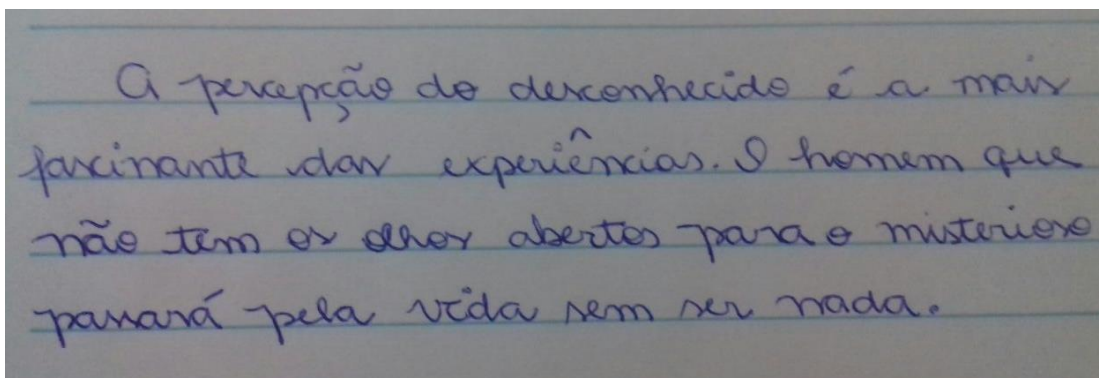 A percepção do desconhecido é a mais
fascinante das experiências. O homem que
não tem os olhos abertos para o misterioso
passará pela vida sem ser nada.